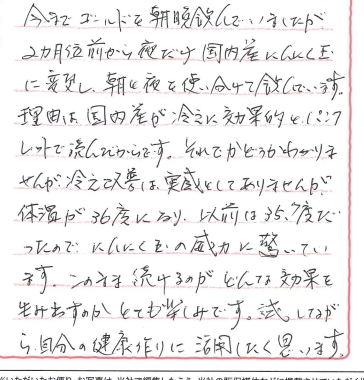 今までゴールドを朝晩飲んでいましたが
2カ月位前から夜だけ国内産にんにく玉
に変更し、朝と夜を使い分けて飲んでいます。
理由は国内産が冷えに効果的とパンフ
レットで読んだからです。それでかどうかわかりま
せんが冷え改善は実感としてありませんが
体温が36度になり、以前は35.7度だ
ったのでにんにく玉の威力に驚いてい
ます。このまま続けるのがどんな効果を
生み出すのかとても楽しみです。試しなが
ら自分の健康作りに活用したく思います。